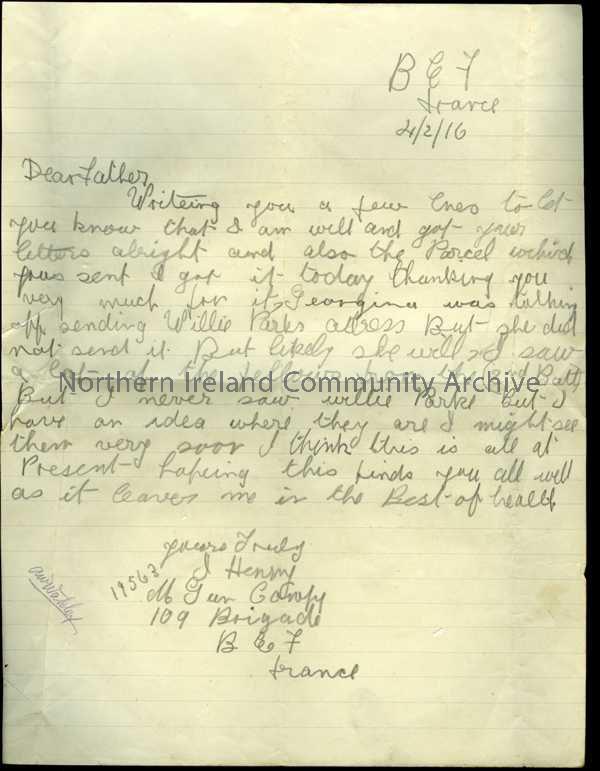 B E F
France
4/2/16
Dear Father
Writeing you a few lnes to let
you know that I am will and got your
letters alright and also the Parcel which
you sent I got it today thanking you
very much for it Georgina was talking
off sending Willie Parks adress But she did
not send it But likely she will I saw
a lot of the fellows from the Batt
Northern Ireland Community Archive
But I never saw willie Parke but I
have an idea where they are I might see
them very soon I think this is all at
Present hopeing this finds you all well
as it leaves me in the Best of health
yours Truly
J Henry
19563
M Gun Compy
109 Brigade
B E F
France